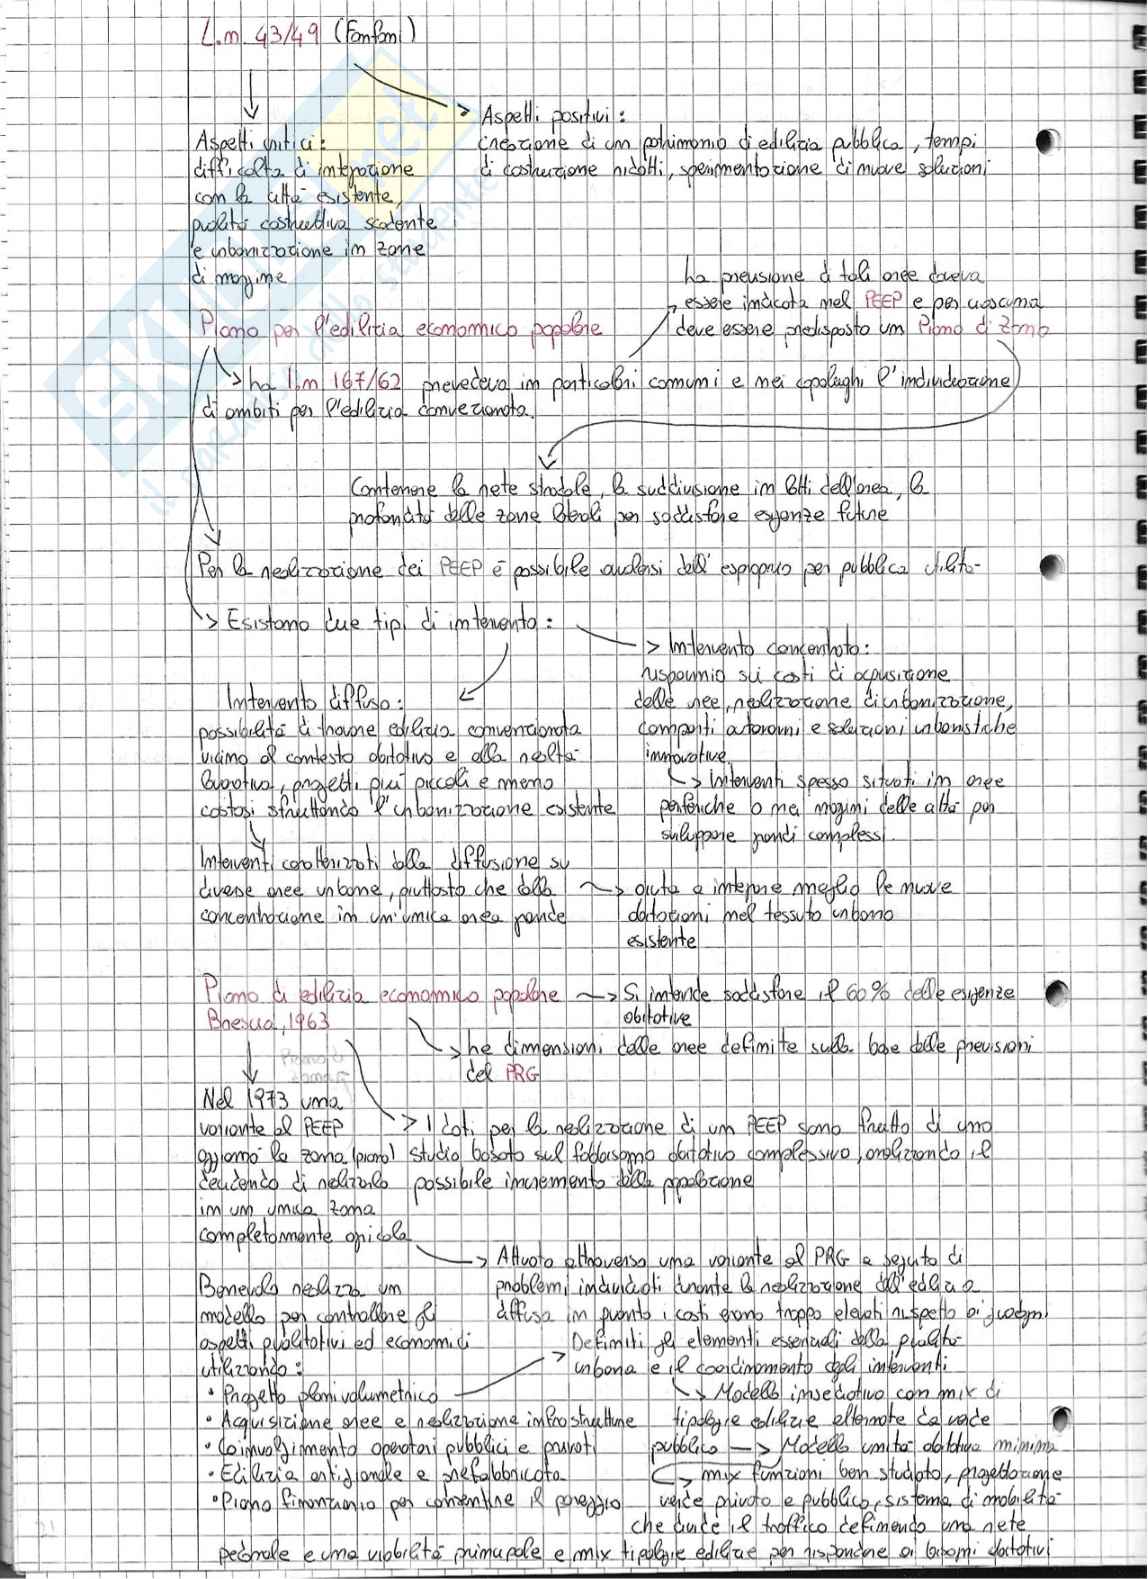 L.n 43/49 (Fanfani)
Aspetti positivi:
creazione di un patrimonio di edilizia pubblica, tempi
di costruzione ridotti, sperimentazione di nuove soluzioni
Aspetti critici:
difficoltà di integrazione
con la città esistente,
qualità costruttiva scadente
e urbanizzazione in zone
di margine
La previsione di tali aree doveva
essere indicata nel PEEP e per ciascuna
deve essere predisposto un Piano di Zona
Piano per l'edilizia economico popolare
La l.n 167/62 prevedeva in particolari comuni e nei capoluoghi l'individuazione
di ambiti per l'edilizia convezionata.
Contenere la rete stradale, la suddivisione in lotti dell'area, la
profondità delle zone laterali per soddisfare esigenze future
Per la realizzazione dei PEEP è possibile avalersi dell'esproprio per pubblica utilità
Esistono due tipi di intervento:
Intervento concentrato:
risparmio sui costi di acquisizione
delle aree, realizzazione di urbanizzazione,
comparti autonomi e soluzioni urbanistiche
innovative
Interventi spesso situati in aree
periferiche o nei margini delle città per
sviluppare grandi complessi.
Intervento diffuso:
possibilità di trovare edilizia convenzionata
vicino al contesto abitativo e alla realtà
lavorativa, progetti più piccoli e meno
costosi sfruttando l'urbanizzazione esistente
Interventi caratterizzati dalla diffusione su
diverse aree urbane, piuttosto che dalla
concentrazione in un'unica area grande
aiuta a integrare meglio le nuove
abitazioni nel tessuto urbano
esistente
Piano di edilizia economico popolare
Brescia, 1963
Si intende soddisfare il 60% delle esigenze
abitative
Le dimensioni delle aree definite sulla base delle previsioni
del PRG
Piano di
zona
Nel 1973 una
variante al PEEP
aggiornò la zona (piano)
decidendo di realizzarlo
in un unica zona
completamente agricola
I dati per la realizzazione di un PEEP sono frutto di uno
studio basato sul fabbisogno abitativo complessivo, analizzando il
possibile incremento della popolazione
Attuato attraverso una variante al PRG a seguito di
problemi individuati durante la realizzazione dell'edilizia
diffusa in quanto i costi erano troppo elevati rispetto ai guadagni
Benevolo realizza un
modello per controllare gli
aspetti qualitativi ed economici
utilizzando:
• Progetto planivolumetrico
• Acquisizione aree e realizzazione infrastrutture
• Coinvolgimento operatori pubblici e privati
• Edilizia artigianale e prefabbricata
• Piano finanziario per consentire il pareggio
Definiti gli elementi essenziali della qualità
urbana e il coordinamento degli interventi
Modello insediativo con mix di
tipologie edilizie alternate da verde
pubblico → Modello unità abitativa minima
mix funzioni ben studiato, progettazione
verde privato e pubblico, sistema di mobilità
che divide il traffico definendo una rete
pedonale e una viabilità principale e mix tipologie edilizie per rispondere ai bisogni abitativi
21